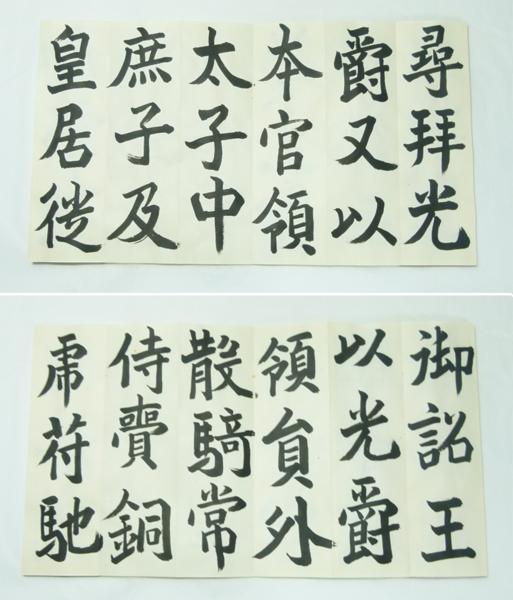 尋拜光
爵又以
本官領
太子中
庶子及
皇居徙
御詔王
以光爵
領員外
散騎常
侍賷銅
虎苻馳